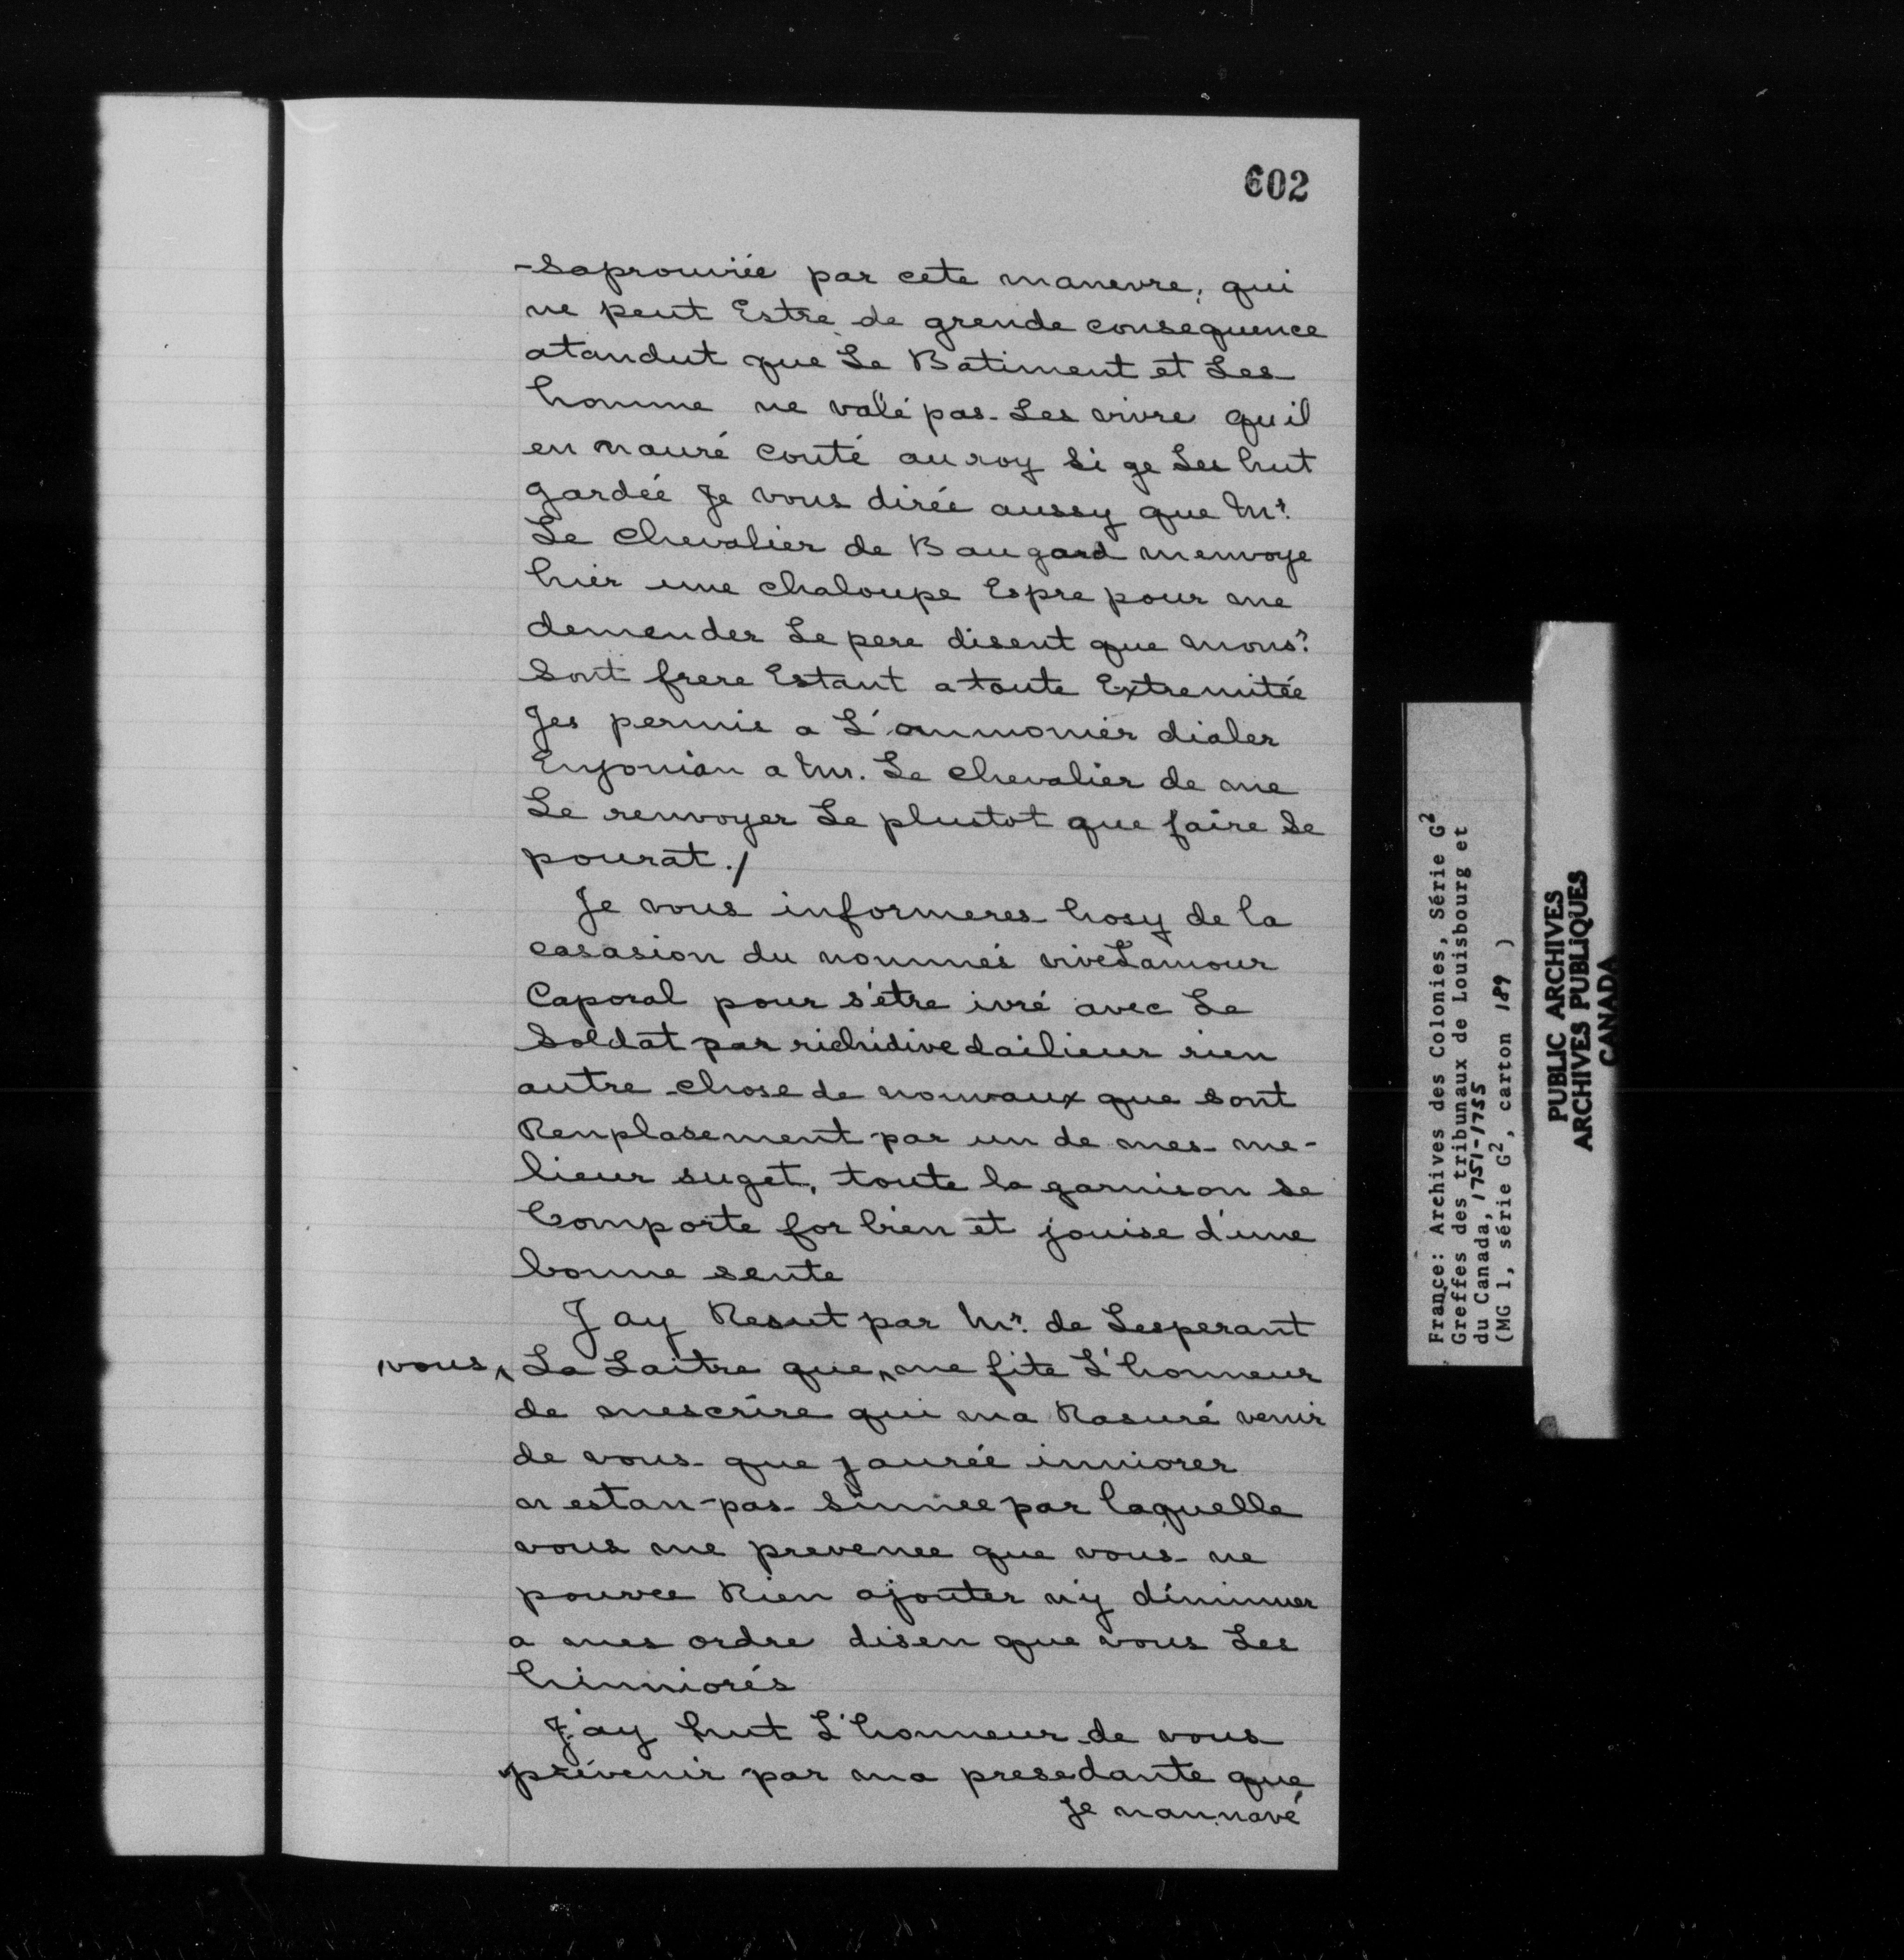 602
-saprouvée par cete manevre, qui
ne peut Estre de grende consequence
atandut que Le Batiment et Les
homme ne valé pas Les vivre quil
en nauré couté au roy si ge Les hut
gardéé Je vous dirée aussy que Mr.
Le Chevalier de Baugard menvoye
hier une chaloupe Espre pour me
demender Le pere disent que Monsr.
sont frere Estant a toute Extremitée
Jes permis a L'aumonier dialer
Enjonian a Mr. Le chevalier de me
Le renvoyer Le plustot que faire se
pourat ./
Je vous informeres hosy de la
casasion du nommés viveLamour
Caporal pour s'être ivré avec Le
Soldat par richidive dailieur rien
autre chose de nouvaux que sont
Renplasement par un de mes me-
lieur suget, toute la garnison se
Comporte for bien et jouise d'une
bonne sente
Jay Resut par Mr. de Lesperant
vous La Laitre que me fite L'honneur
de mescrire qui ma Rasuré venir
de vous que jaurée inniorer
n estan pas sinnee par laquelle
vous me prevenee que vous ne
pouvee Rien ajouter n'y diminuer
a mes ordre disen que vous Les
hinniorés
J'ay hut L'honneur de vous
prévenir par ma presedante que
Je naunavé
France: Archives des Colonies, Série G2
Greffes des tribunaux de Louisbourg et
du Canada, 1751-1755
(MG 1, série G2, carton 189 )
PUBLIC ARCHIVES
ARCHIVES PUBLIQUES
CANADA